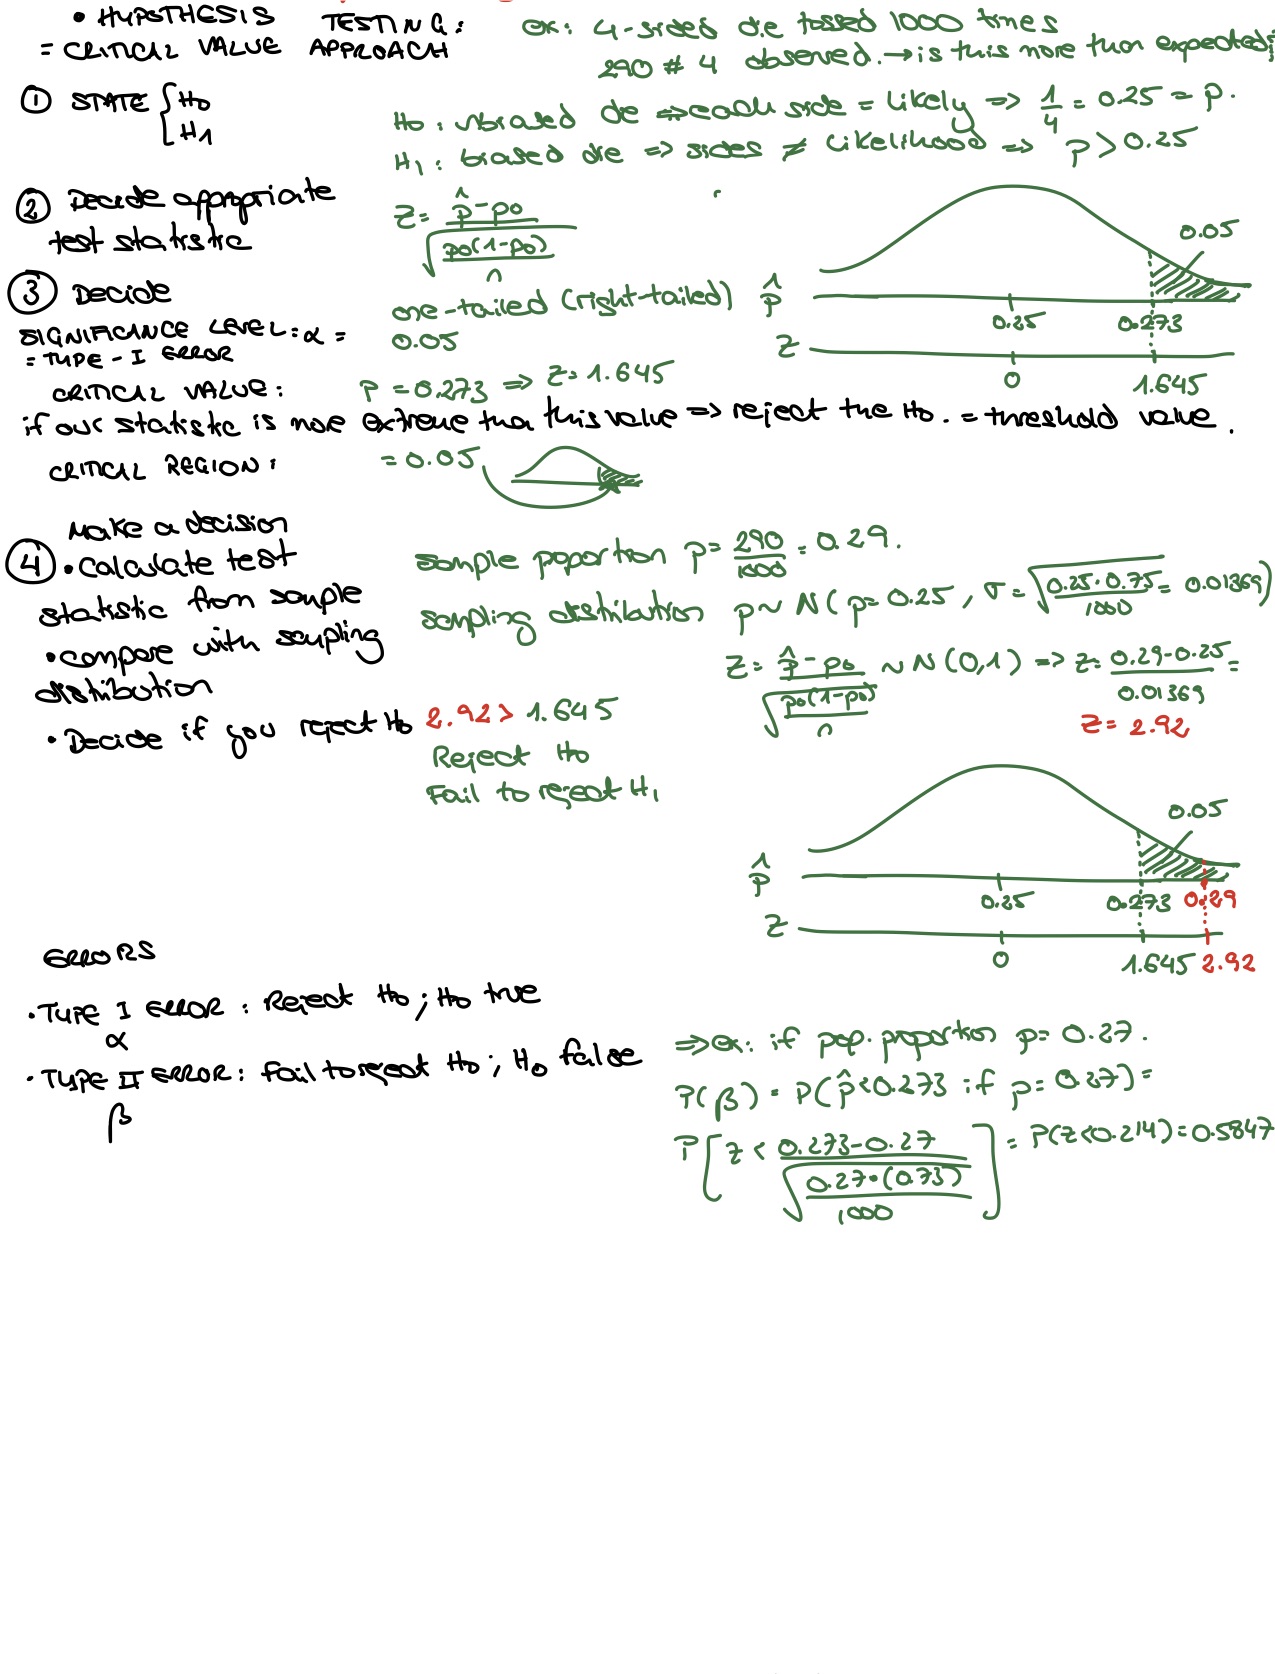 • HYPOTHESIS TESTING:
= CRITICAL VALUE APPROACH
ex: 4-sided die tossed 1000 times
290 # 4 observed. → is this more than expected?
① STATE { H0
H1
H0: unbiased die => each side = likely => 1/4 = 0.25 = p.
H1: biased die => sides ≠ likelihood => p > 0.25
② Decide appropriate
test statistic
Z = (p̂ - p0) / √(p0(1-p0)/n)
0.05
p̂
0.25 0.273
Z
0 1.645
③ Decide
one-tailed (right-tailed)
SIGNIFICANCE LEVEL: α =
= TYPE - I ERROR
0.05
CRITICAL VALUE:
P = 0.273 => Z = 1.645
if our statistic is more extreme than this value => reject the H0. = threshold value.
CRITICAL REGION:
= 0.05
④ Make a decision
• Calculate test
statistic from sample
• compare with sampling
distribution
• Decide if you reject H0
sample poportion p = 290/1000 = 0.29.
sampling distribution p ~ N( p = 0.25, σ = √(0.25·0.75/1000) = 0.01369)
Z = (p̂ - p0) / √(p0(1-p0)/n) ~ N(0,1) => z = (0.29-0.25)/0.01369 =
Z = 2.92
2.92 > 1.645
Reject H0
Fail to reject H1
0.05
p̂
0.25 0.273 0.29
Z
0 1.645 2.92
ERRORS
• TYPE I ERROR: Reject H0; H0 true
α
• TYPE II ERROR: Fail to reject H0; H0 false
β
=> ex: if pop. proportion p = 0.27.
P(β) = P(p̂ < 0.273 if p = 0.27) =
P[ z < (0.273-0.27) / √(0.27·(0.73)/1000) ] = P(Z < 0.214) = 0.5847